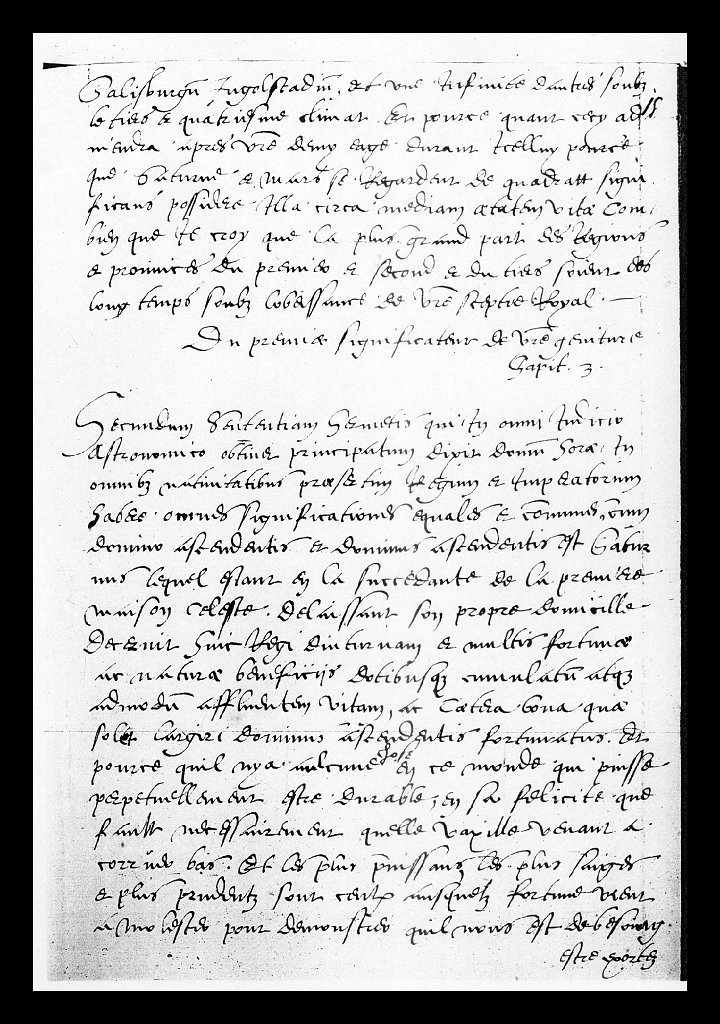 Salisburgū Ingolstadiū, Et une Infinité dautres soubz
le tiers & quatriesme climat. Et pource quant cecy ad
15.
viendra apres vrē demy eage durant Icelluy pource
que Saturne & Mars se Regardent de quadratt signi
ficans possidere Illa circa mediam ætatem vitæ Com-
bien que Je croy que la plus grand part des Regions
& provinces du premier & second & du tiers soient des
long temps soubz lobeissance de vrē sceptre Royal. —
Du premier significateur de vrē geniture
Chapit. 3.
Secundum Sententiam Hermetis qui In omni Iudicio
Astronomico obtinet principatum dixit domū horæ In
omnibz nativitatibus præsertim Regum & Imperatorum
habere omnes significationes equales & communes cum
domino ascendentis et dominus ascendentis est Satur
nus lequel estant en la succedante de la premiere
maison celeste. Delaissant son propre domicille
Decrevit huic Regi diuturnam & multis fortunæ
ac naturæ beneficijs dotibusqz cumulatā atqz
admodū affluentem vitam, ac Cætera bona quæ
solet largiri dominus ascendentis fortunatus. Et
pource quil nya aulcune chose en ce monde qui puisse
perpetuellement estre durable en sa felicite que
fault necessairement quelle vaxille venant a
corruer bas. Et les plus puissans les plus saiges
& plus prudentz sont ceulx ausquelz fortune vient
a molester pour demonstrer quil nous est de besoing
estre exortez